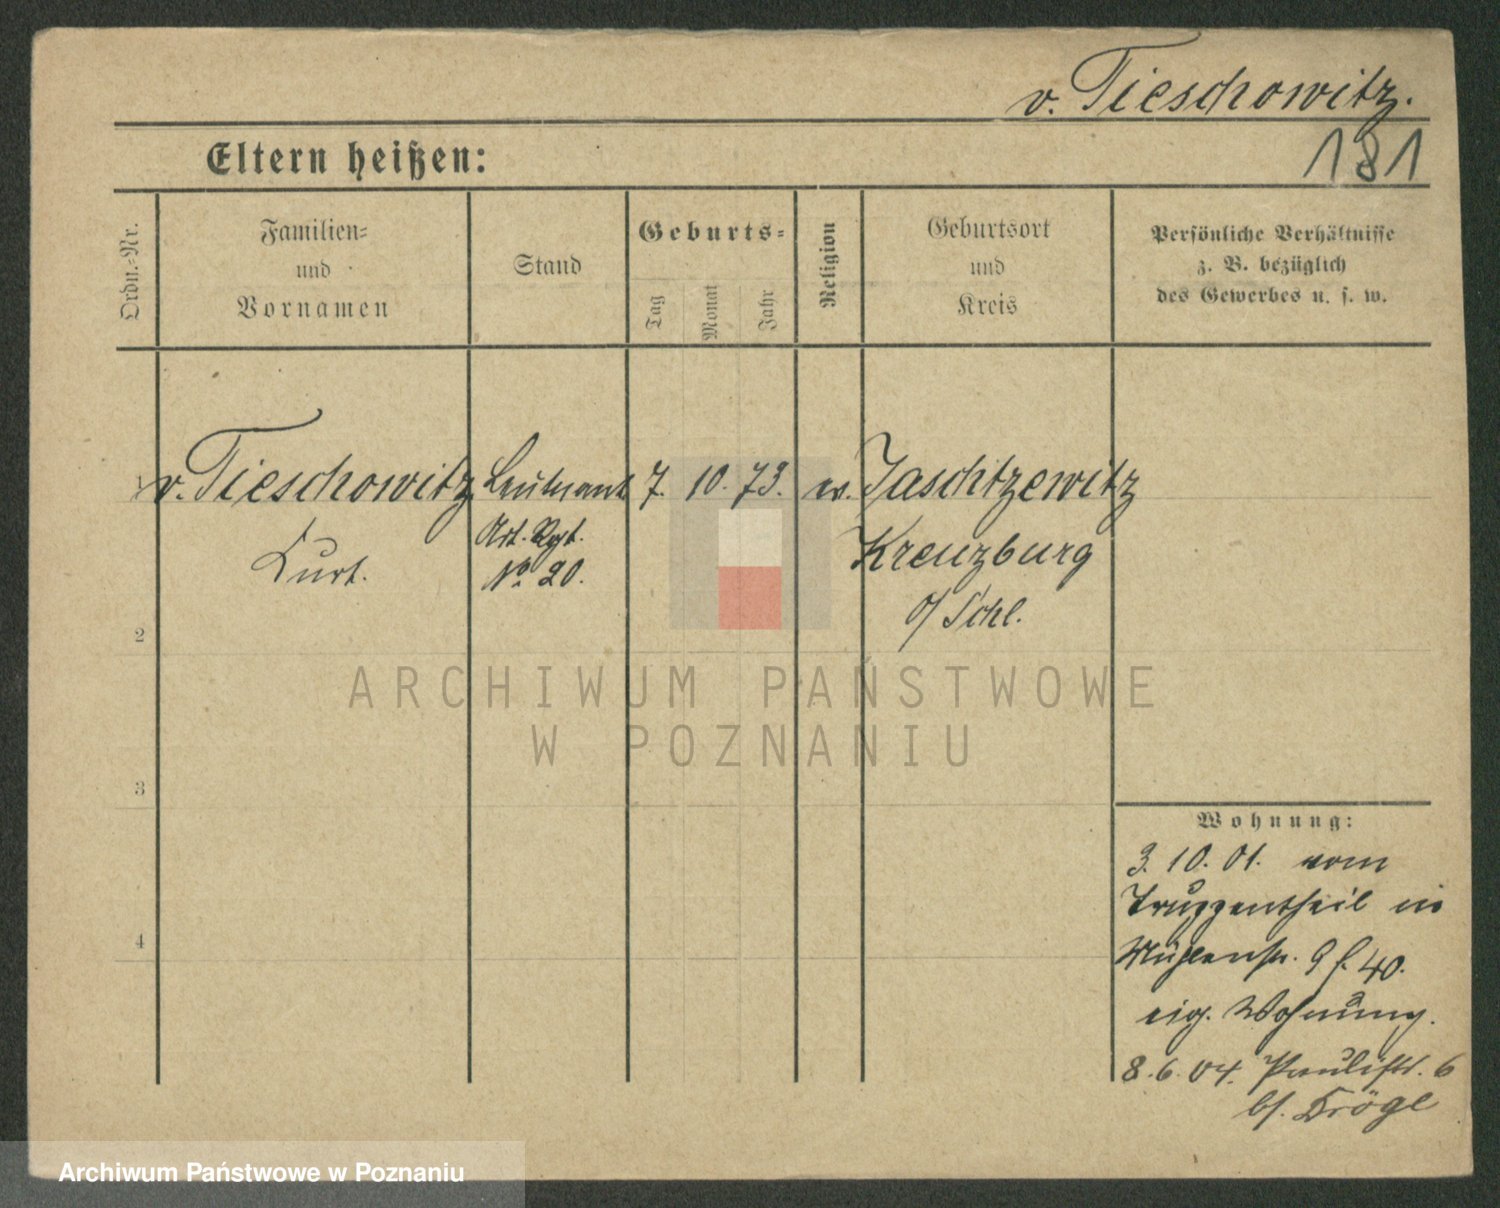 v. Tieschowitz.
181
Eltern heißen:
Ordn.=Nr.
Familien=
und
Vornamen
Stand
Geburts=
Tag
Monat
Jahr
Religion
Geburtsort
und
Kreis
Persönliche Verhältnisse
z. B. bezüglich
des Gewerbes u. s. w.
1
v. Tieschowitz
Kurt.
Leutnant
Art. Rgt.
No 20.
7. 10. 73.
ev.
Jaschtzewitz
Kreuzburg
O/Schl.
2
3
4
ARCHIWUM PAŃSTWOWE
W POZNANIU
Wohnung:
3. 10. 01. vom
Truppentheil in
Mühlenstr. 9 40.
eig. Wohnung.
8. 6. 04. Paulistr. 6
bei
Archiwum Państwowe w Poznaniu